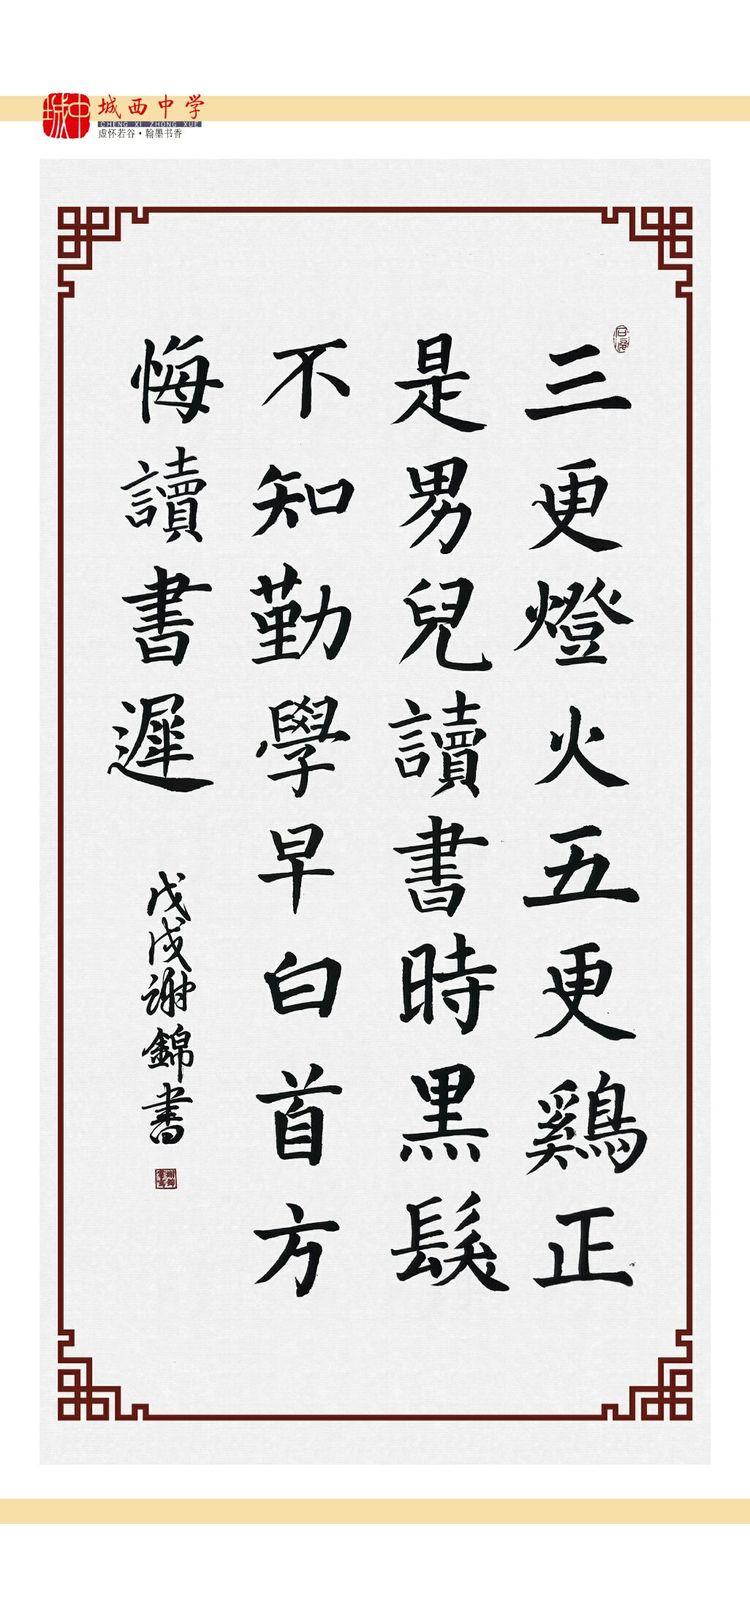 城西中学
CHENG XI ZHONG XUE
虚怀若谷·翰墨书香
三更燈火五更鷄正
是男兒讀書時黑髮
不知勤學早白首方
悔讀書遲
戊戌謝錦書